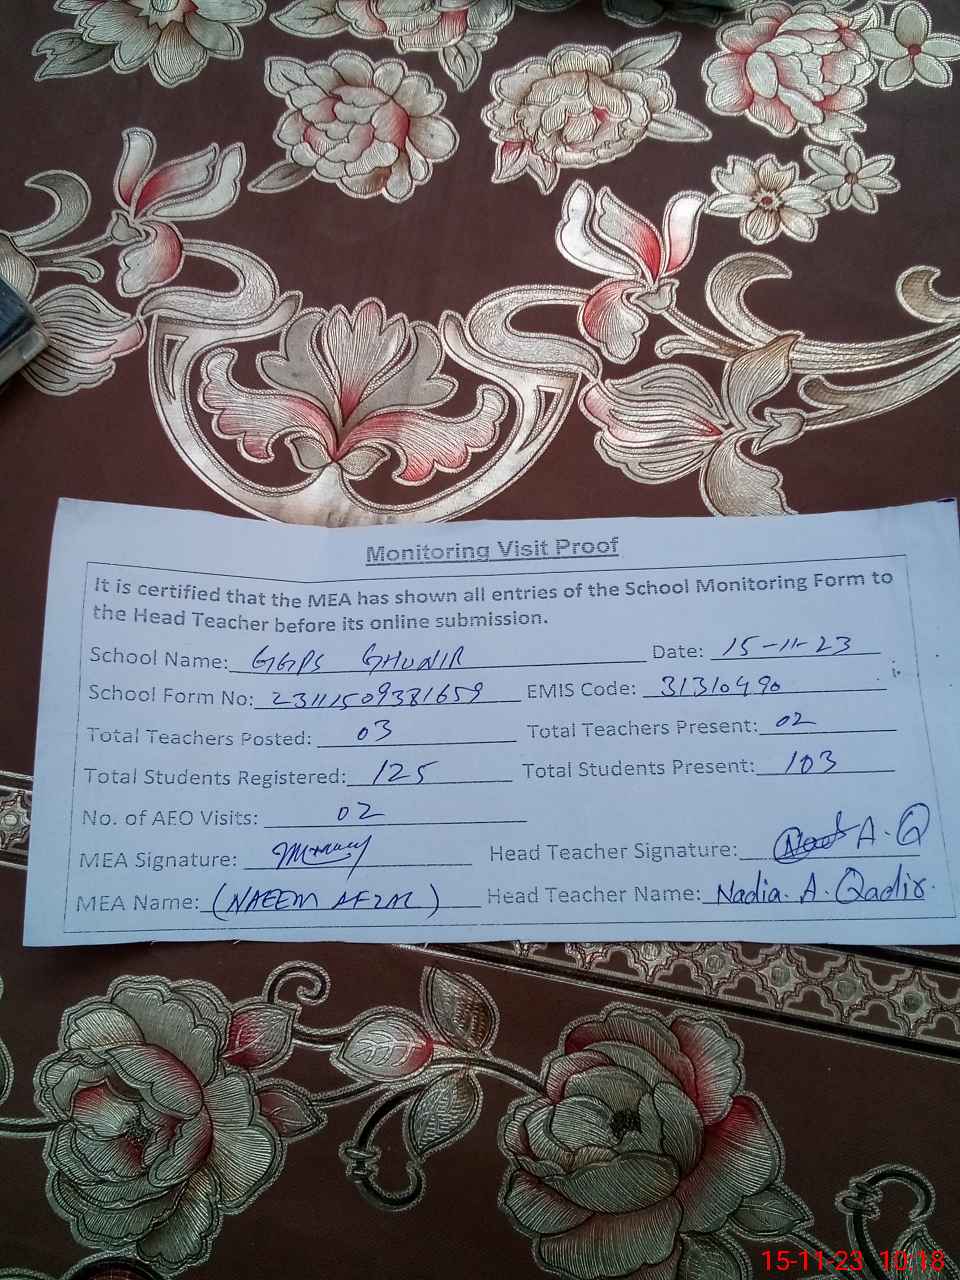 Monitoring Visit Proof
It is certified that the MEA has shown all entries of the School Monitoring Form to
the Head Teacher before its online submission.
School Name: GGPS GHUNIR Date: 15-11-23
School Form No: 23111509381659 EMIS Code: 31310490
Total Teachers Posted: 03 Total Teachers Present: 02
Total Students Registered: 125 Total Students Present: 103
No. of AEO Visits: 02
MEA Signature: Head Teacher Signature: A.Q
MEA Name: (NAEEM AFZAL) Head Teacher Name: Nadia. A. Qadir.
15-11-23 10:18